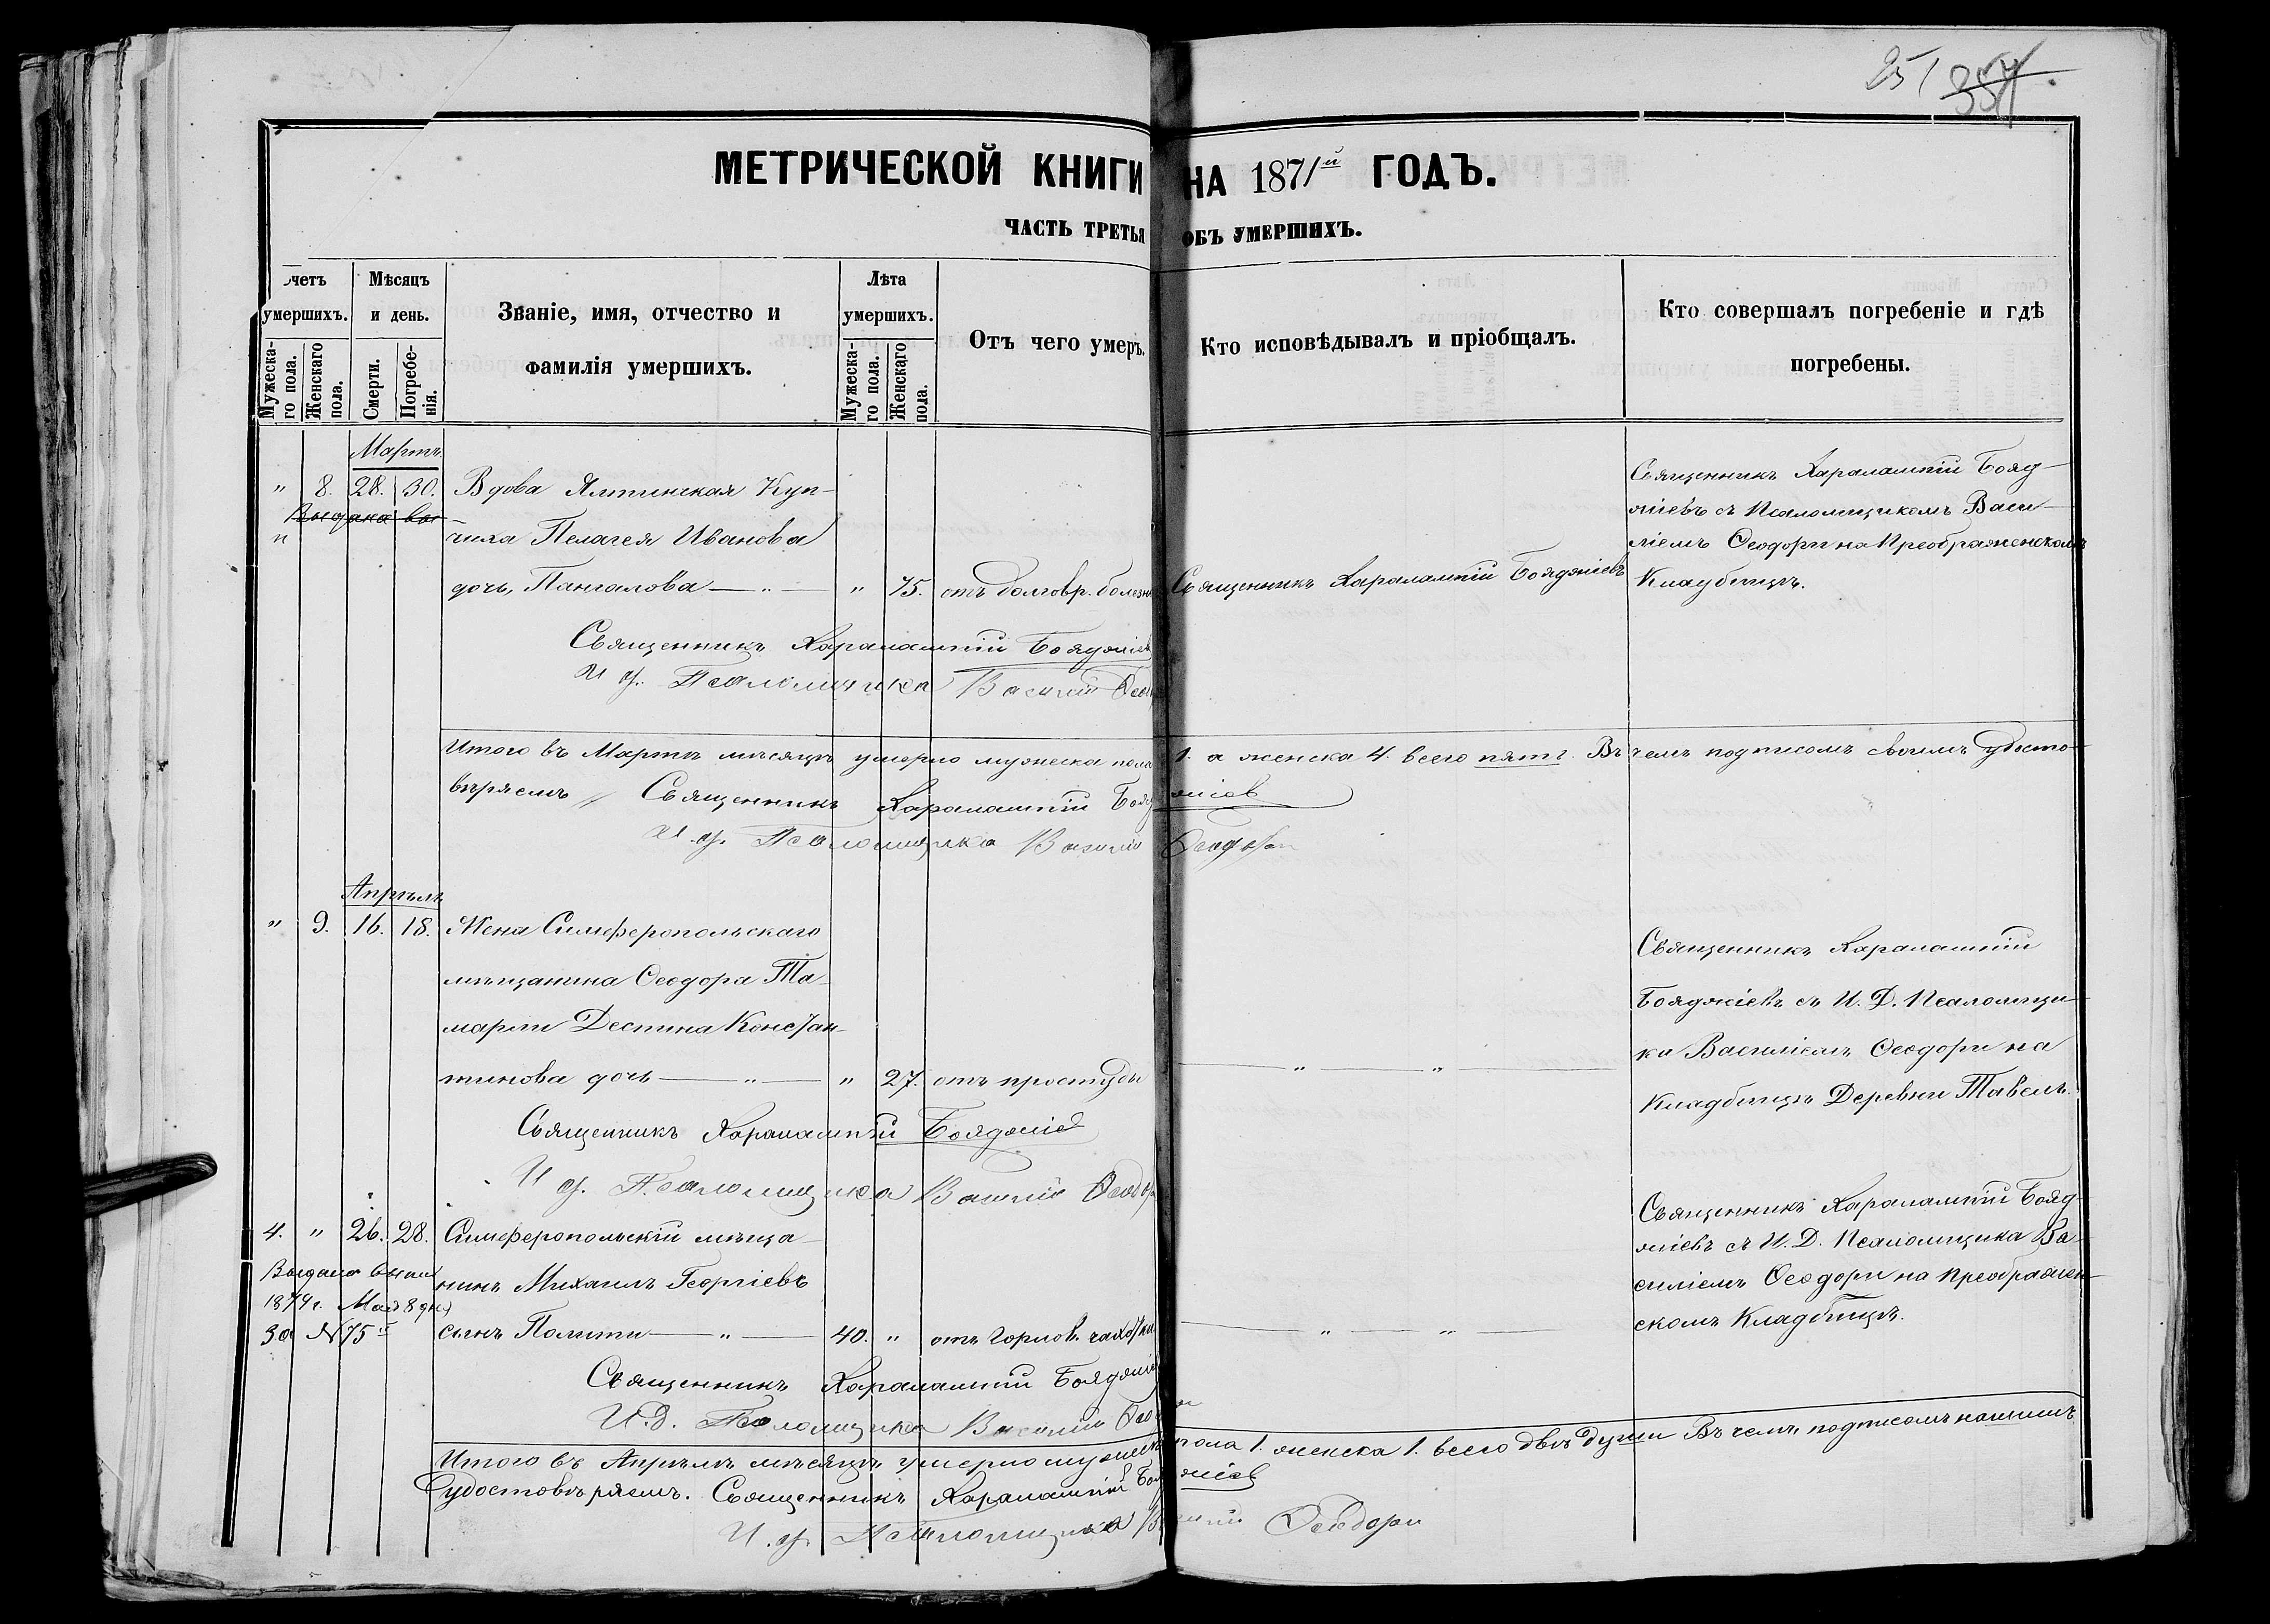 251 354
МЕТРИЧЕСКОЙ КНИГИ НА 1871й ГОДЪ.
ЧАСТЬ ТРЕТЬЯ ОБЪ УМЕРШИХЪ.
четъ умершихъ.
Мужеска-го пола.
Женскаго пола.
Мѣсяцъ и день.
Смерти.
Погребе-нія.
Званіе, имя, отчество и
фамилія умершихъ.
Лѣта умершихъ.
Мужеска-го пола.
Женскаго пола.
Отъ чего умеръ.
Кто исповѣдывалъ и пріобщалъ.
Кто совершалъ погребеніе и гдѣ
погребены.
Мартъ.
" 8. 28. 30. Вдова Ялтинская Куп-
Выдана вы
чиха Пелагея Иванова
дочь, Пангалова — " — " 75. отъ долговр. болезни
Священникъ Харалампій Бояджіевъ
Священникъ Харалампій Бояд-
жіевъ съ Псаломщикомъ Васи-
ліемъ Ѳеодори на Преображенскомъ
Кладбищѣ.
Священникъ Харалампій Бояджіев
И д. Псаломщика Василій Ѳеод
Итого въ Мартѣ мѣсяцѣ умерло мужеска пола 1. а женска 4. всего пять. Въ чемъ подписомъ своимъ удосто-
вѣряемъ Священникъ Харалампій Бояджіев
И д. Псаломщика Василій Ѳеодори
Апрѣль
" 9. 16. 18. Жена Симферопольскаго
мѣщанина Ѳеодора Та-
марли Деспина Констан-
тинова дочь — " — " 27. отъ простуды — " — " —
Священникъ Харалампій
Бояджіевъ съ И. Д. Псаломщи-
ка Василіемъ Ѳеодори на
Кладбищѣ Деревни Тавель.
Священникъ Харалампій Бояджіев
И д. Псаломщика Василій Ѳеодори
4. " 26. 28. Симферопольскій мѣща-
нинъ Михаилъ Георгіевъ
сынъ Полити — " — 40. " отъ горлов. чахотки — " — " —
Выдано
1874 г. Мая 8 дня
за №75
Священникъ Харалампій Бояд-
жіевъ съ И. Д. Псаломщика Ва-
силіемъ Ѳеодори на Преображен-
скомъ Кладбищѣ.
Священникъ Харалампій Бояджіев
И.д. Псаломщика Василій Ѳеодори
Итого въ Апрѣлѣ мѣсяцѣ умерло мужеска пола 1. женска 1. всего двѣ души Въ чемъ подписомъ нашимъ
удостовѣряемъ. Священникъ Харалампій Бояджіев
И. д. Псаломщика Василій Ѳеодори